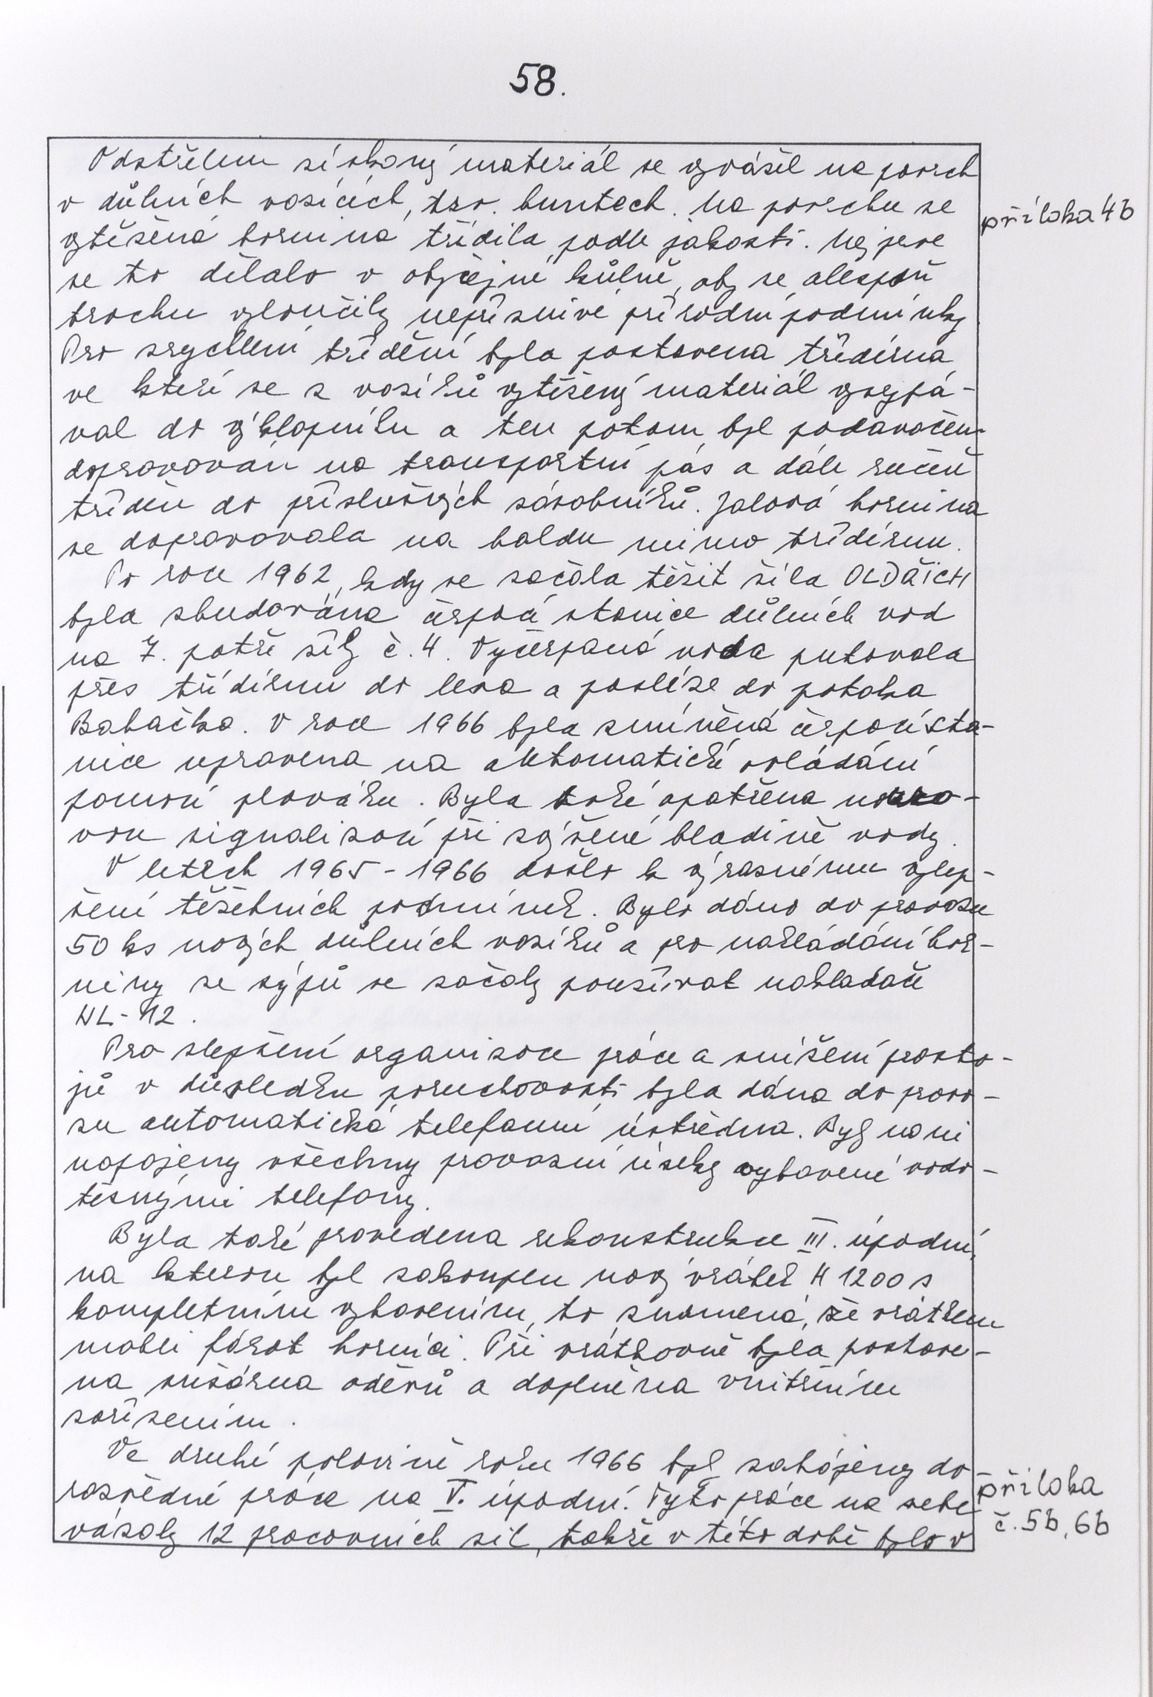 58.
Odstřelem získaný materiál se vyvážel na povrch
v důlních vozících, tzv. huntech. Na povrchu se
příloha 4b
vytěžená hornina třídila podle jakosti. Nejprve
se to dělalo v obyčejné kůlně, aby se alespoň
trochu vyloučily nepříznivé přírodní podmínky.
Pro zrychlení třídění byla postavena třídírna
ve které se z vozíků vytěžený materiál vysypá-
val do výklopníku a ten potom byl podavačem
dopravován na transportní pás a dále ručně
tříděn do příslušných zásobníků. Jalová hornina
se dopravovala na haldu mimo třídírnu.
Po roce 1962, kdy se začala těžit žíla OLDŘICH
byla zbudována čerpací stanice důlních vod
na 7. patře žíly č. 4. Vyčerpaná voda putovala
přes třídírnu do lesa a posléze do potoka
Bahačka. V roce 1966 byla zmíněná čerpací sta-
nice upravena na automatické ovládání
pomocí plováku. Byla také opatřena
vou signalizací při zvýšené hladině vody.
V letech 1965-1966 došlo k výraznému vylep-
šení těžebních podmínek. Bylo dáno do provozu
50 ks nových důlních vozíků a pro nakládání hor-
niny se sýpů se začaly používat nakladače
NL-12.
Pro zlepšení organizace práce a snížení prosto-
jů v důsledku poruchovosti byla dána do provo-
zu automatická telefonní ústředna. Byly na ni
napojeny všechny provozní úseky vybavené vodo-
těsnými telefony.
Byla také provedena rekonstrukce III. úpadní,
na kterou byl zakoupen nový vrátek H 1200 s
kompletním vybavením, to znamená, že vrátkem
mohli fárat horníci. Při vrátkovně byla postave-
na sušárna oděvů a doplněna vnitřním
zařízením.
Ve druhé polovině roku 1966 byly zahájeny do-
příloha
rozvědné práce na V. úpadní. Tyto práce na sebe
č. 5b, 6b
vázaly 12 pracovních sil, takže v této době bylo v